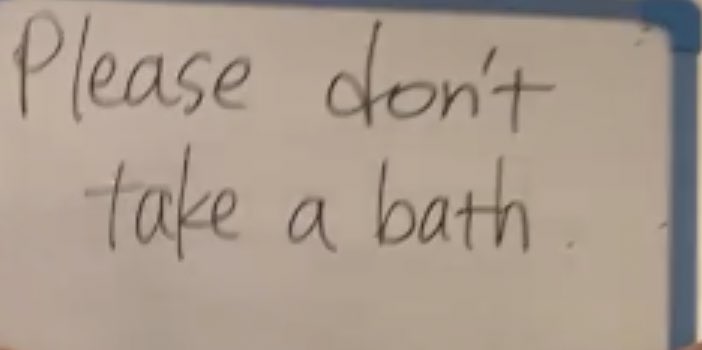 Please don't
take a bath.